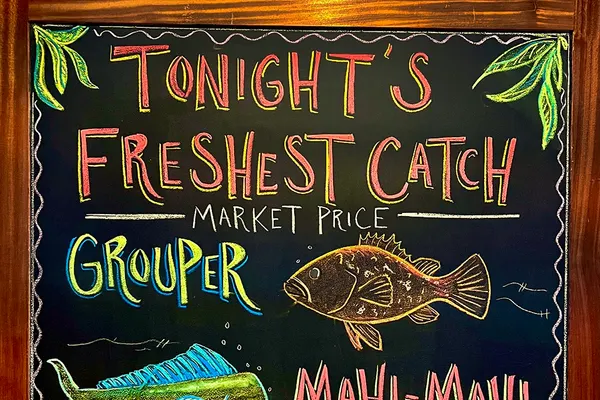 TONIGHT'S
FRESHEST CATCH
MARKET PRICE
GROUPER
MAHI-MAHI